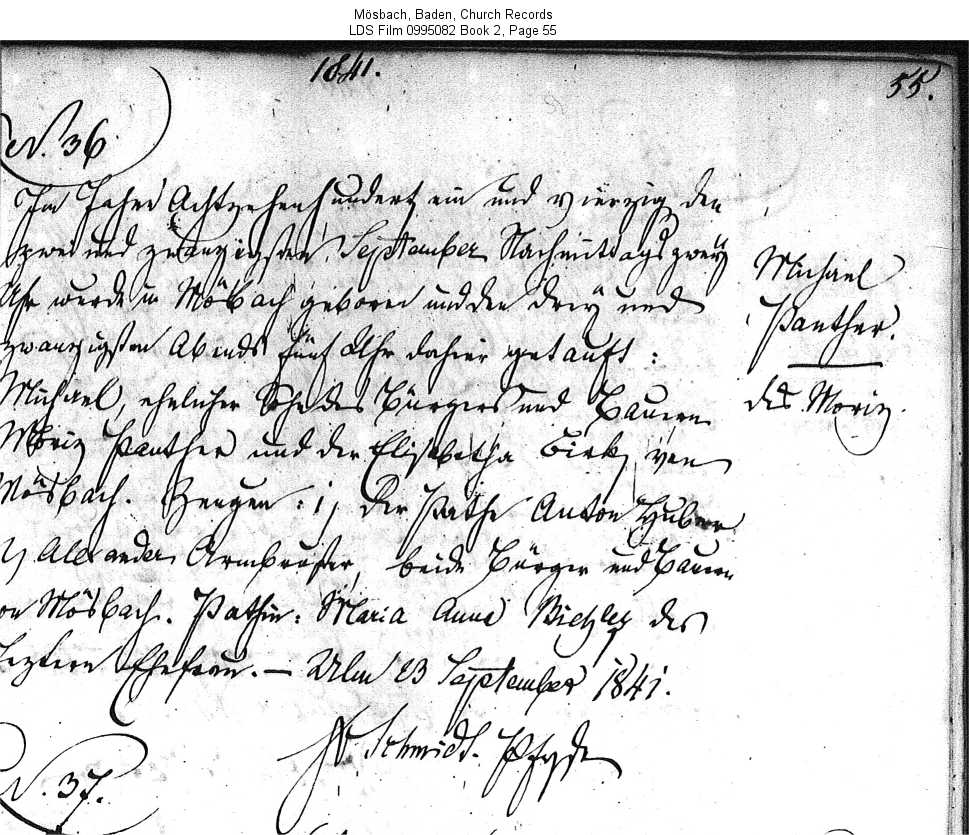 Mösbach, Baden, Church Records
LDS Film 0995082 Book 2, Page 55
1841.
55.
N. 36
Im Jahre Achtzehenhundert ein und vierzig den
zwei und zwanzigsten September Nachmittags zwey
Uhr wurde in Mösbach geboren und den drey und
zwanzigsten Abends fünf Uhr dahier getauft:
Michael, ehelicher Sohn des Bürgers und Bauern
Moriz Panther und der Elisabetha Birk, von
Mösbach. Zeugen: 1) Der Pathe Anton Huber
2) Alexander Armbruster, beide Bürger und Bauern
von Mösbach. Pathin: Maria Anna des
leztern Ehefrau. — Ulm 23 September 1841.
Schmidt.
Michael
Panther.
des Moriz.
N. 37.